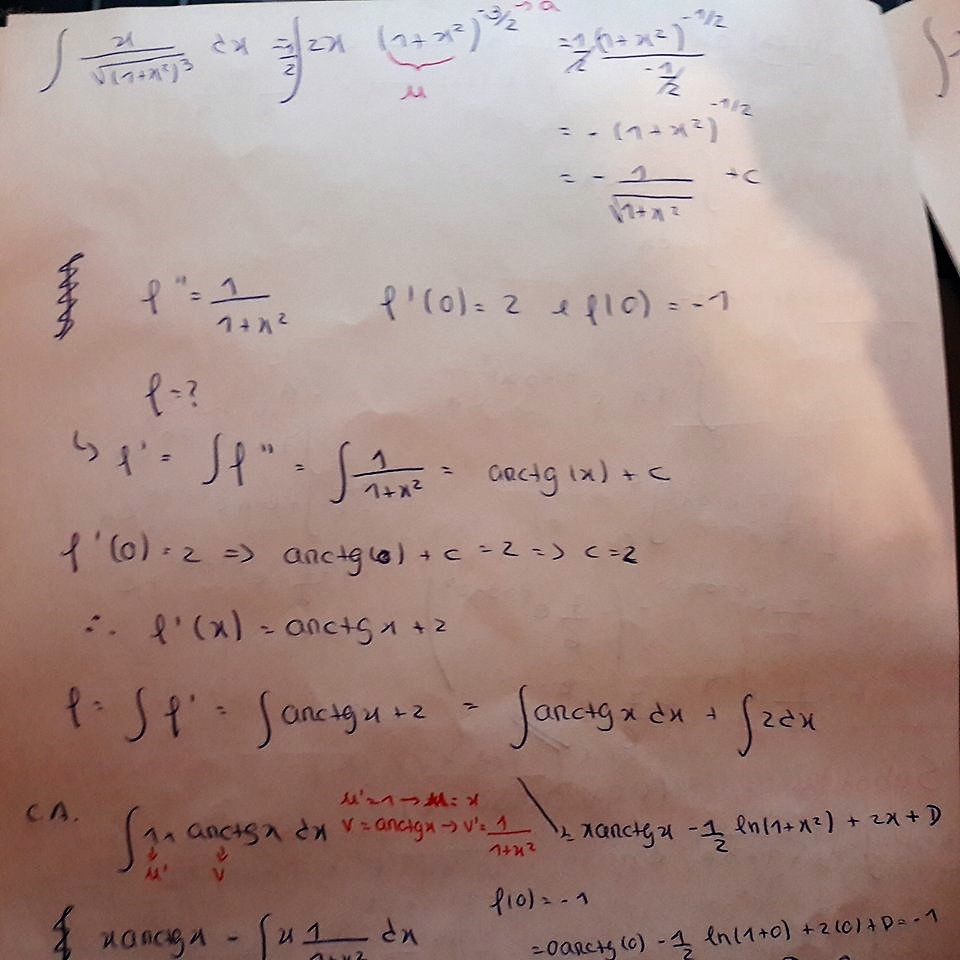 ∫ x/√(1+x²)³ dx = 1/2 ∫ 2x (1+x²)^(-3/2) → a = 1/2 (1+x²)^(-1/2) / (-1/2)
u
= - (1+x²)^(-1/2)
= - 1/√(1+x²) + C
f'' = 1/(1+x²) f'(0) = 2 e f(0) = -1
f = ?
↳ f' = ∫ f'' = ∫ 1/(1+x²) = arctg(x) + C
f'(0) = 2 => arctg(0) + C = 2 => C = 2
∴ f'(x) = arctg x + 2
f = ∫ f' = ∫ arctg x + 2 = ∫ arctg x dx + ∫ 2 dx
C.A. ∫ 1 × arctg x dx u' = 1 → u = x
v = arctg x → v' = 1/(1+x²)
u' v
= x arctg x - 1/2 ln(1+x²) + 2x + D
f(0) = -1
x arctg x - ∫ x 1/(1+x²) dx
= 0 arctg(0) - 1/2 ln(1+0) + 2(0) + D = -1